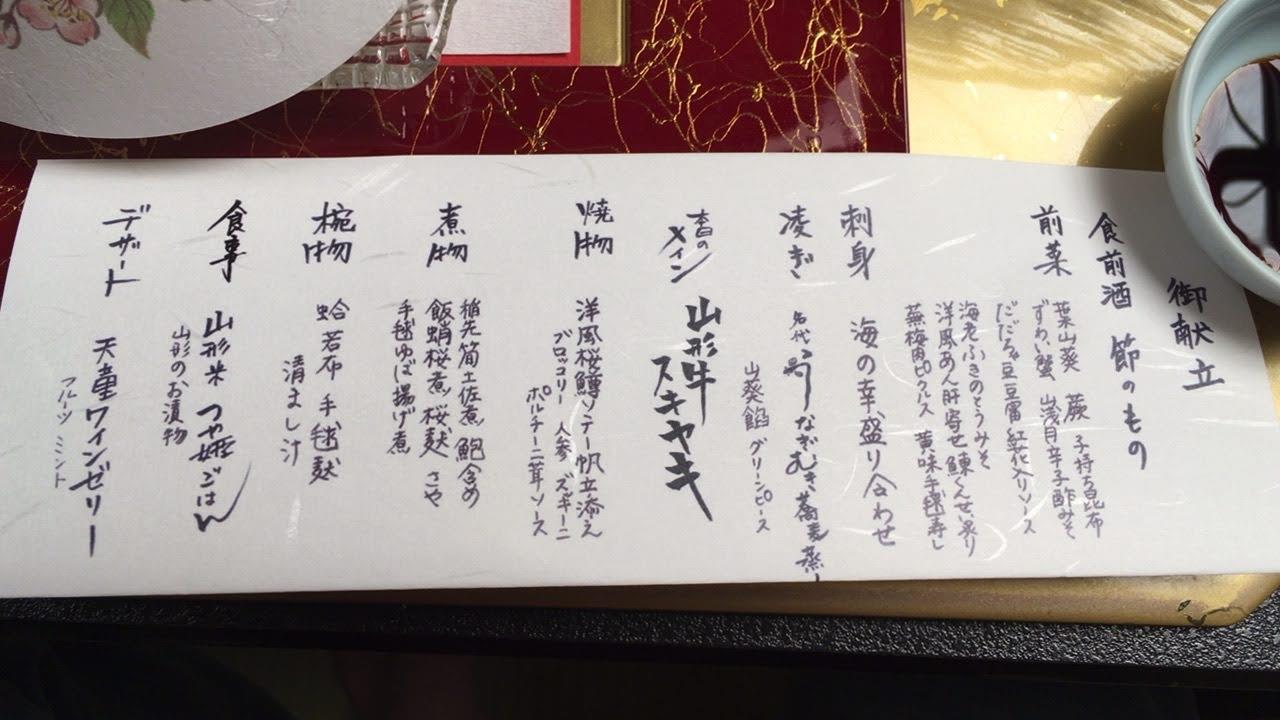 御献立
食前酒 節のもの
前菜 葉山葵 蕨 子持ち昆布
ずわい蟹 浅月辛子酢みそ
だだちゃ豆豆腐 紅花入りソース
海老ふきのとうみそ
洋風あん肝寄せ 鰊くんせい炙り
蕪梅肉ピクルス 黄味手毬寿し
刺身 海の幸盛り合わせ
凌ぎ 名代うなぎむき蕎麦蒸し
山葵餡 グリーンピース
本日のメイン 山形牛スキヤキ
焼物 洋風桜鱒ソテー帆立添え
ブロッコリー 人参 ズッキーニ
ポルチーニ茸ソース
煮物 稲先筍土佐煮 鮑含め
飯蛸桜煮 桜麸 さや
手毬ゆば揚げ煮
椀物 蛤 若布 手毬麸
清まし汁
食事 山形米 つや姫ごはん
山形のお漬物
デザート 天童ワインゼリー
フルーツ ミント